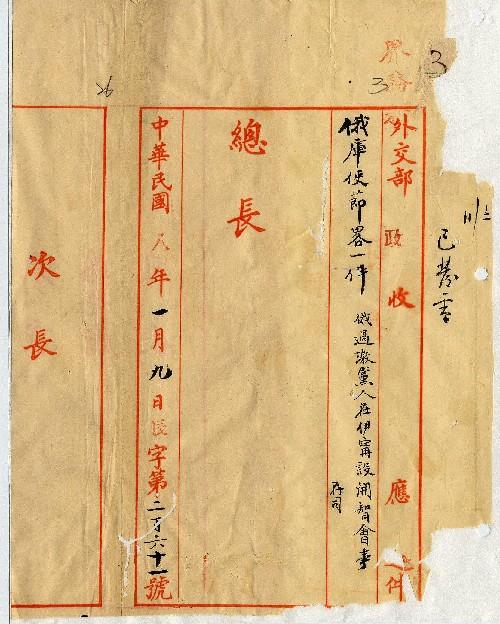 3
3
26
外交部 政 收 應 件
俄庫使節畧一件 俄過激黨人在伊甯設開智會事
存司
總長
中華民國八年一月九日 字第二百六十一號
次長